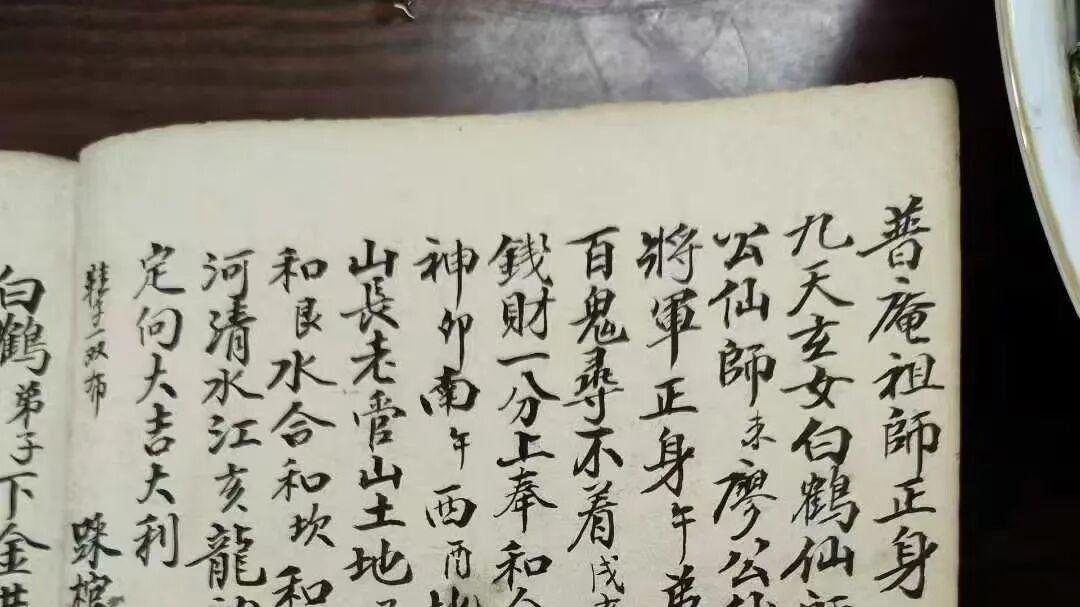 普庵祖師正身
九天玄女白鶴仙師
公仙師未廖公仙
將軍正身午弟
百鬼尋不着戌亥
錢財一分上奉和合
神卯南午西酉地
山長老管山土地
和艮水合和坎和
河清水江亥龍神
定向大吉大利
鞋子一双布
白鶴弟子下金